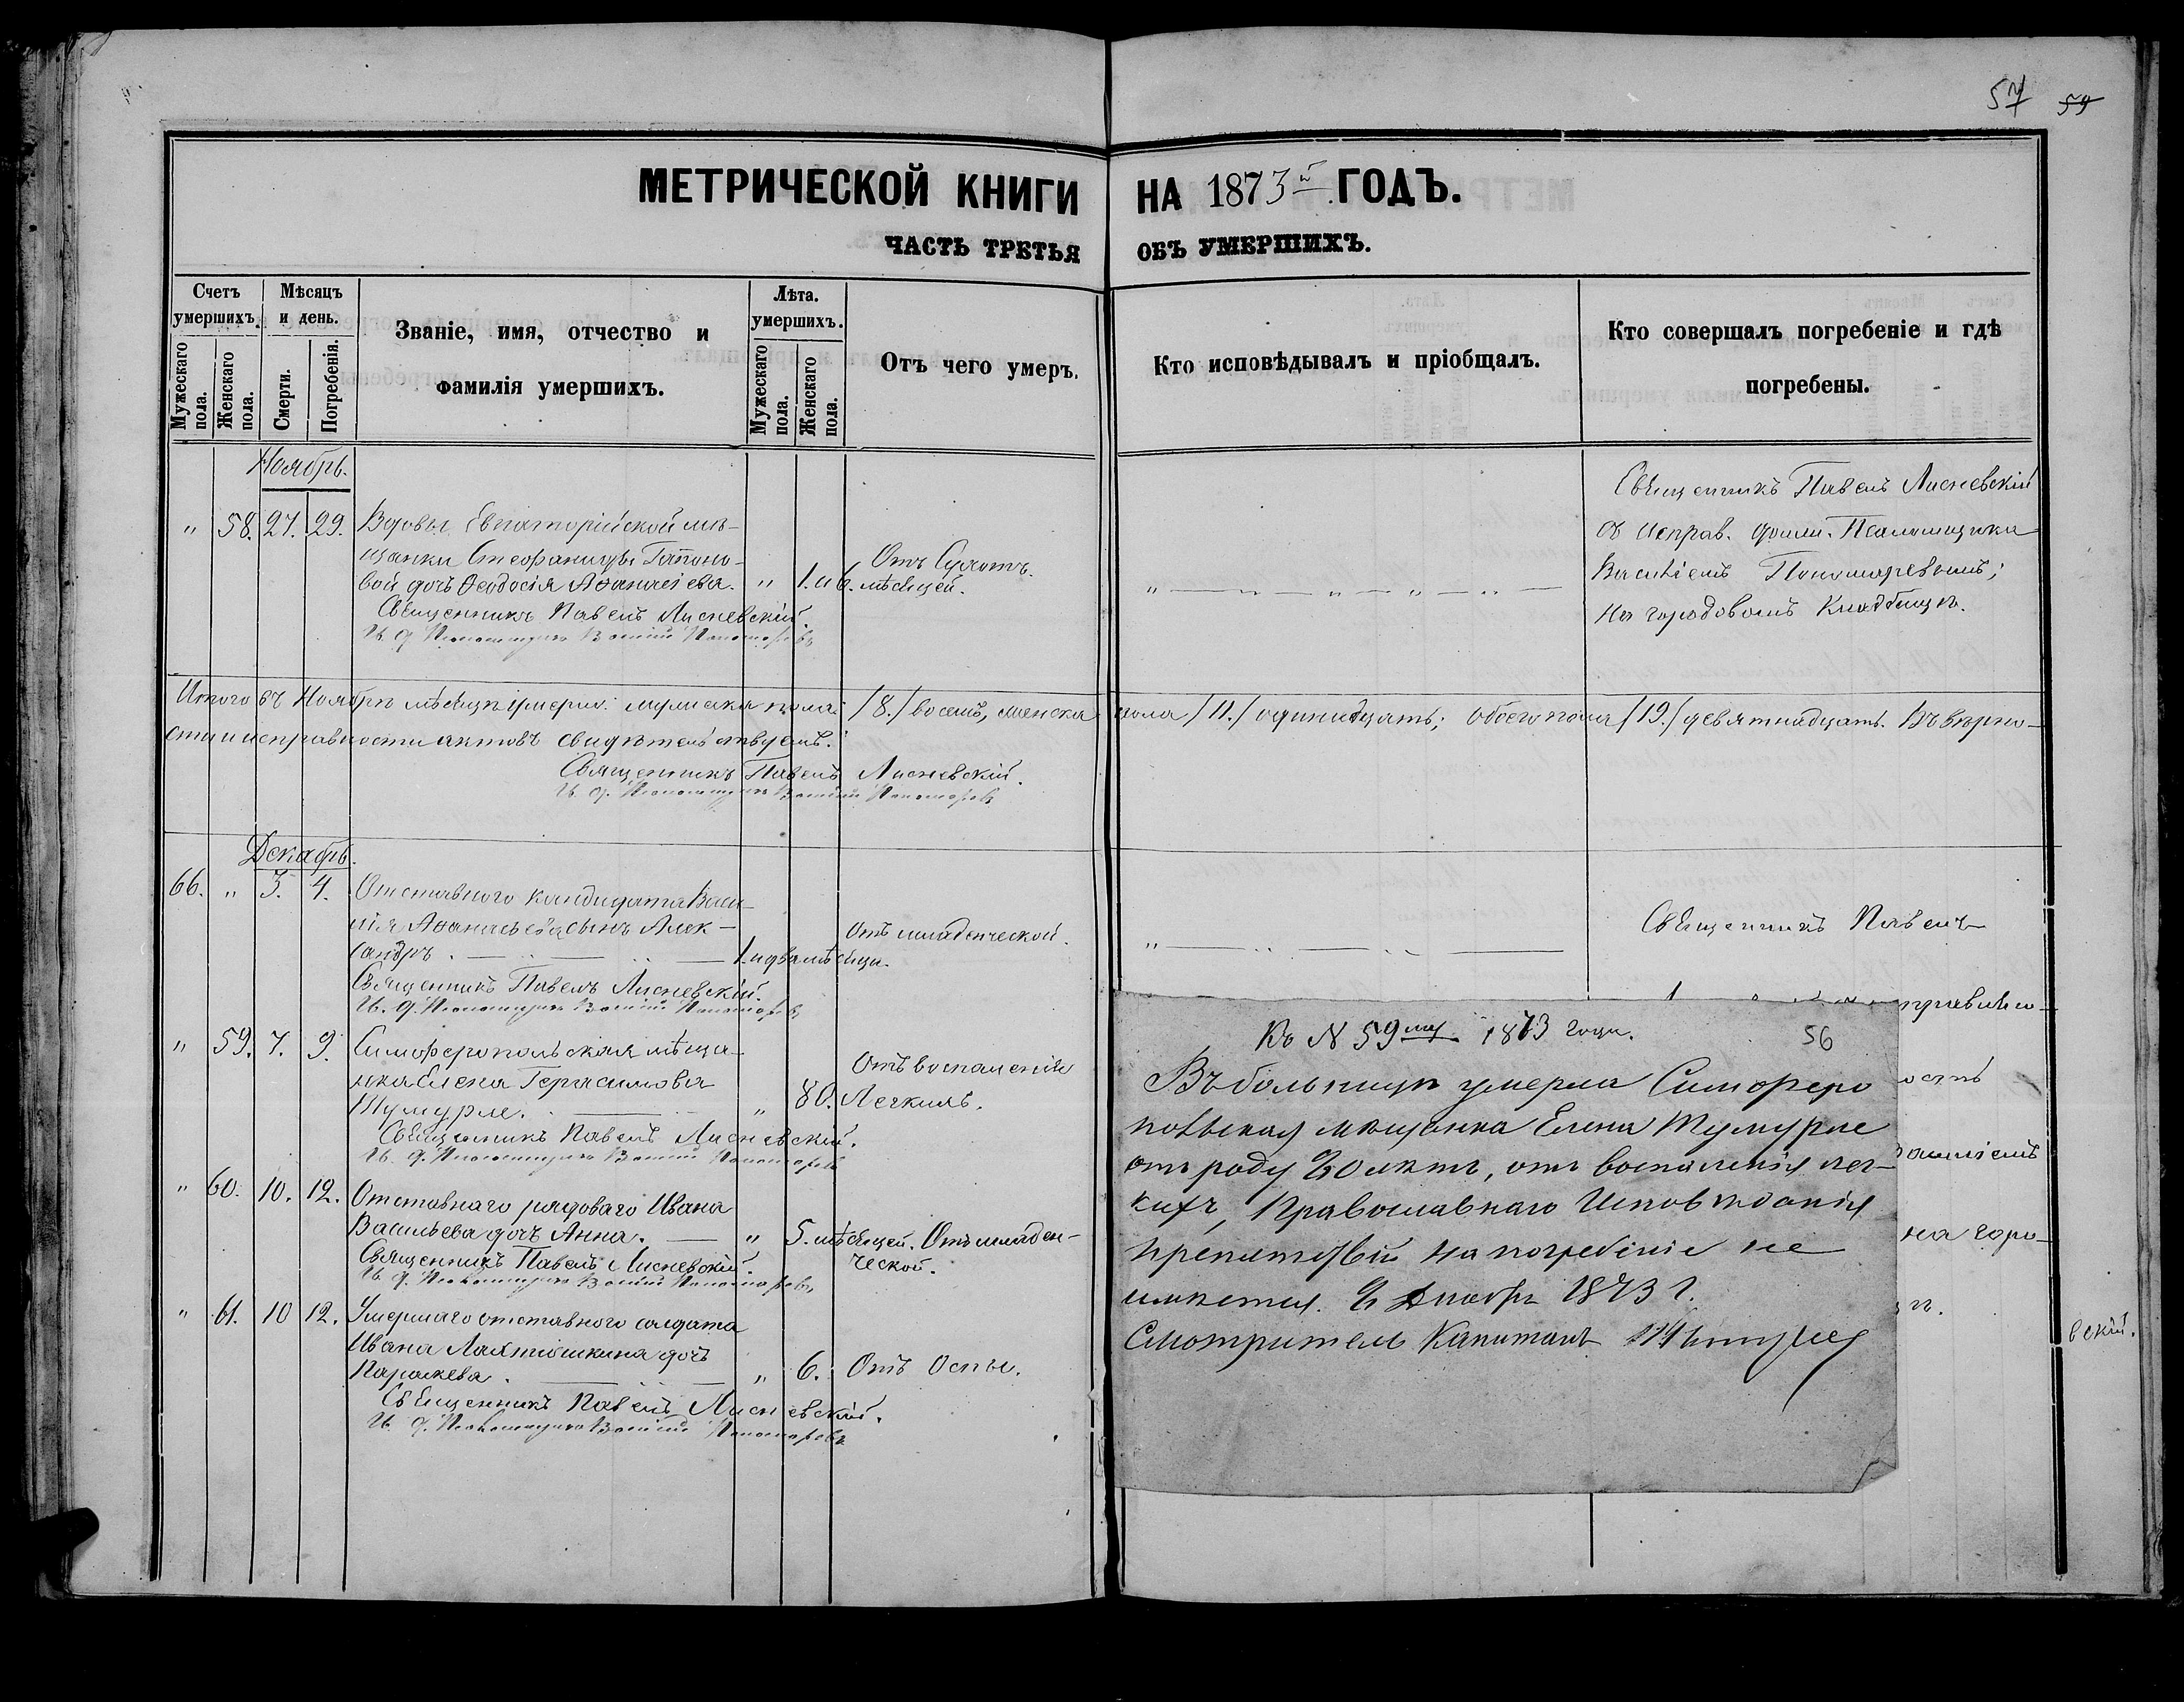 57 59
МЕТРИЧЕСКОЙ КНИГИ НА 1873й ГОДЪ.
ЧАСТЬ ТРЕТЬЯ ОБЪ УМЕРШИХЪ.
Счетъ умершихъ.
Мужескаго пола.
Женскаго пола.
Мѣсяцъ и день.
Смерти.
Погребенія.
Званіе, имя, отчество и
фамилія умершихъ.
Лѣта умершихъ.
Мужескаго пола.
Женскаго пола.
Отъ чего умеръ.
Кто исповѣдывалъ и пріобщалъ.
Кто совершалъ погребеніе и гдѣ
погребены.
Ноябрь.
" 58. 27. 29. Вдовы Евпаторійской мѣ-
щанки Стефаниды
вой дочь Ѳеодосія Аѳанасіева. " 1. и 6. мѣсяцей.
Отъ Сухотъ.
Священникъ Павелъ Лисневскій.
И. д. Псаломщика Василій Пономаревъ
Священникъ Павелъ Лисневскій
съ исправ. должн. Псаломщика
Василіемъ Пономаревымъ;
на городовомъ Кладбищѣ.
Итого въ Ноябрѣ мѣсяцѣ умерло: мужеска пола /8./ восемь, женска пола /11./ одинадцать; обоего пола /19./ девятнадцать. Въ вѣрно-
сти и исправности актовъ свидѣтельствуемъ.
Священникъ Павелъ Лисневскій.
И. д. Псаломщика Василій Пономаревъ
Декабрь.
66. " 3. 4. Отставного кандидата Васи-
лія Аѳанасьева сынъ Алек-
сандръ. 1. и два мѣсяца.
Отъ младенческой.
Священникъ Павелъ Лисневскій.
И. д. Псаломщика Василій Пономаревъ
Священникъ Павелъ
" 59. 7. 9. Симферопольская мѣща-
нка Елена Герасимова
Тумурле. " 80.
Отъ воспаленія
Легкихъ.
Священникъ Павелъ Лисневскій.
И. д. Псаломщика Василій Пономаревъ
" 60. 10. 12. Отставнаго рядоваго Ивана
Васильева дочь Анна. " 5. мѣсяцей. Отъ младен-
ческой.
Священникъ Павелъ Лисневскій.
И. д. Псаломщика Василій Пономаревъ
" 61. 10 12. Умершаго отставного солдата
Ивана Лахтюшкина дочь
Параскева. " 6. Отъ Оспы.
Священникъ Павелъ Лисневскій.
И. д. Псаломщика Василій Пономаревъ
Къ N 59му 1873 года. 56
Въ больницѣ умерла Симферо
польская мѣщанка Елена Тумурле
отъ роду 80 лѣтъ, отъ воспаленія лег-
кихъ, Православнаго Исповѣданія
препятствій на погребеніе не
имѣется. 8 Декабр 1873 г.
Смотритель Капитанъ
на горо-
вскій.